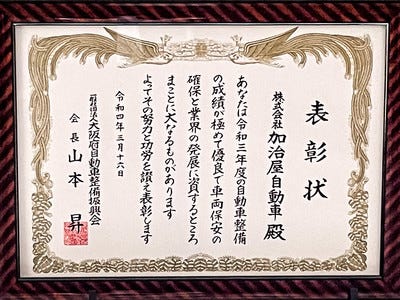 表彰状
株式会社 加治屋自動車 殿
あなたは令和三年度の自動車整備
の成績が極めて優良で車両保安の
確保と業界の発展に資するところ
まことに大なるものがあります
よってその努力と功労を讃え表彰します
令和四年三月十六日
一般社団法人大阪府自動車整備振興会
会長 山本 昇